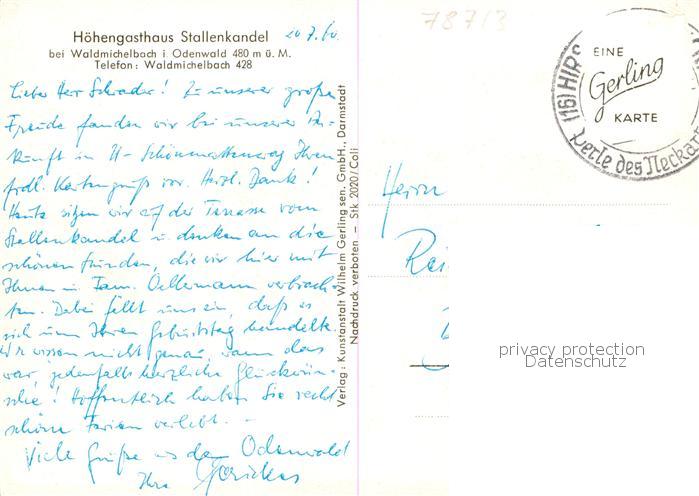 Höhengasthaus Stallenkandel
bei Waldmichelbach i. Odenwald 480 m ü. M.
Telefon: Waldmichelbach 428
20.7.60.
Lieber Herr Schrader! Zu unserer großen
Freude fanden wir bei unserer An-
kunft in U-Schönmattenwag Ihren
frdl. Kartengruß vor. Herzl. Dank!
Heute sitzen wir auf der Terrasse vom
Stallenkandel u. denken an die
schönen Stunden, die wir hier mit
Ihnen u. Fam. Oellermann verbrach-
ten. Dabei fällt uns ein, daß es
sich um Ihren Geburtstag handelte.
Wir wissen nicht genau, wann das
war, jedenfalls herzliche Glückwün-
sche! Hoffentlich haben Sie recht
schöne Ferien verlebt. -
Viele Grüße aus dem Odenwald
Ihre
Verlag: Kunstanstalt Wilhelm Gerling sen. GmbH., Darmstadt
Nachdruck verboten – Stk 2020/Coli
78713
EINE
Gerling
KARTE
(16) HIRS
Perle des Neckar
Herrn
Rei
privacy protection
Datenschutz